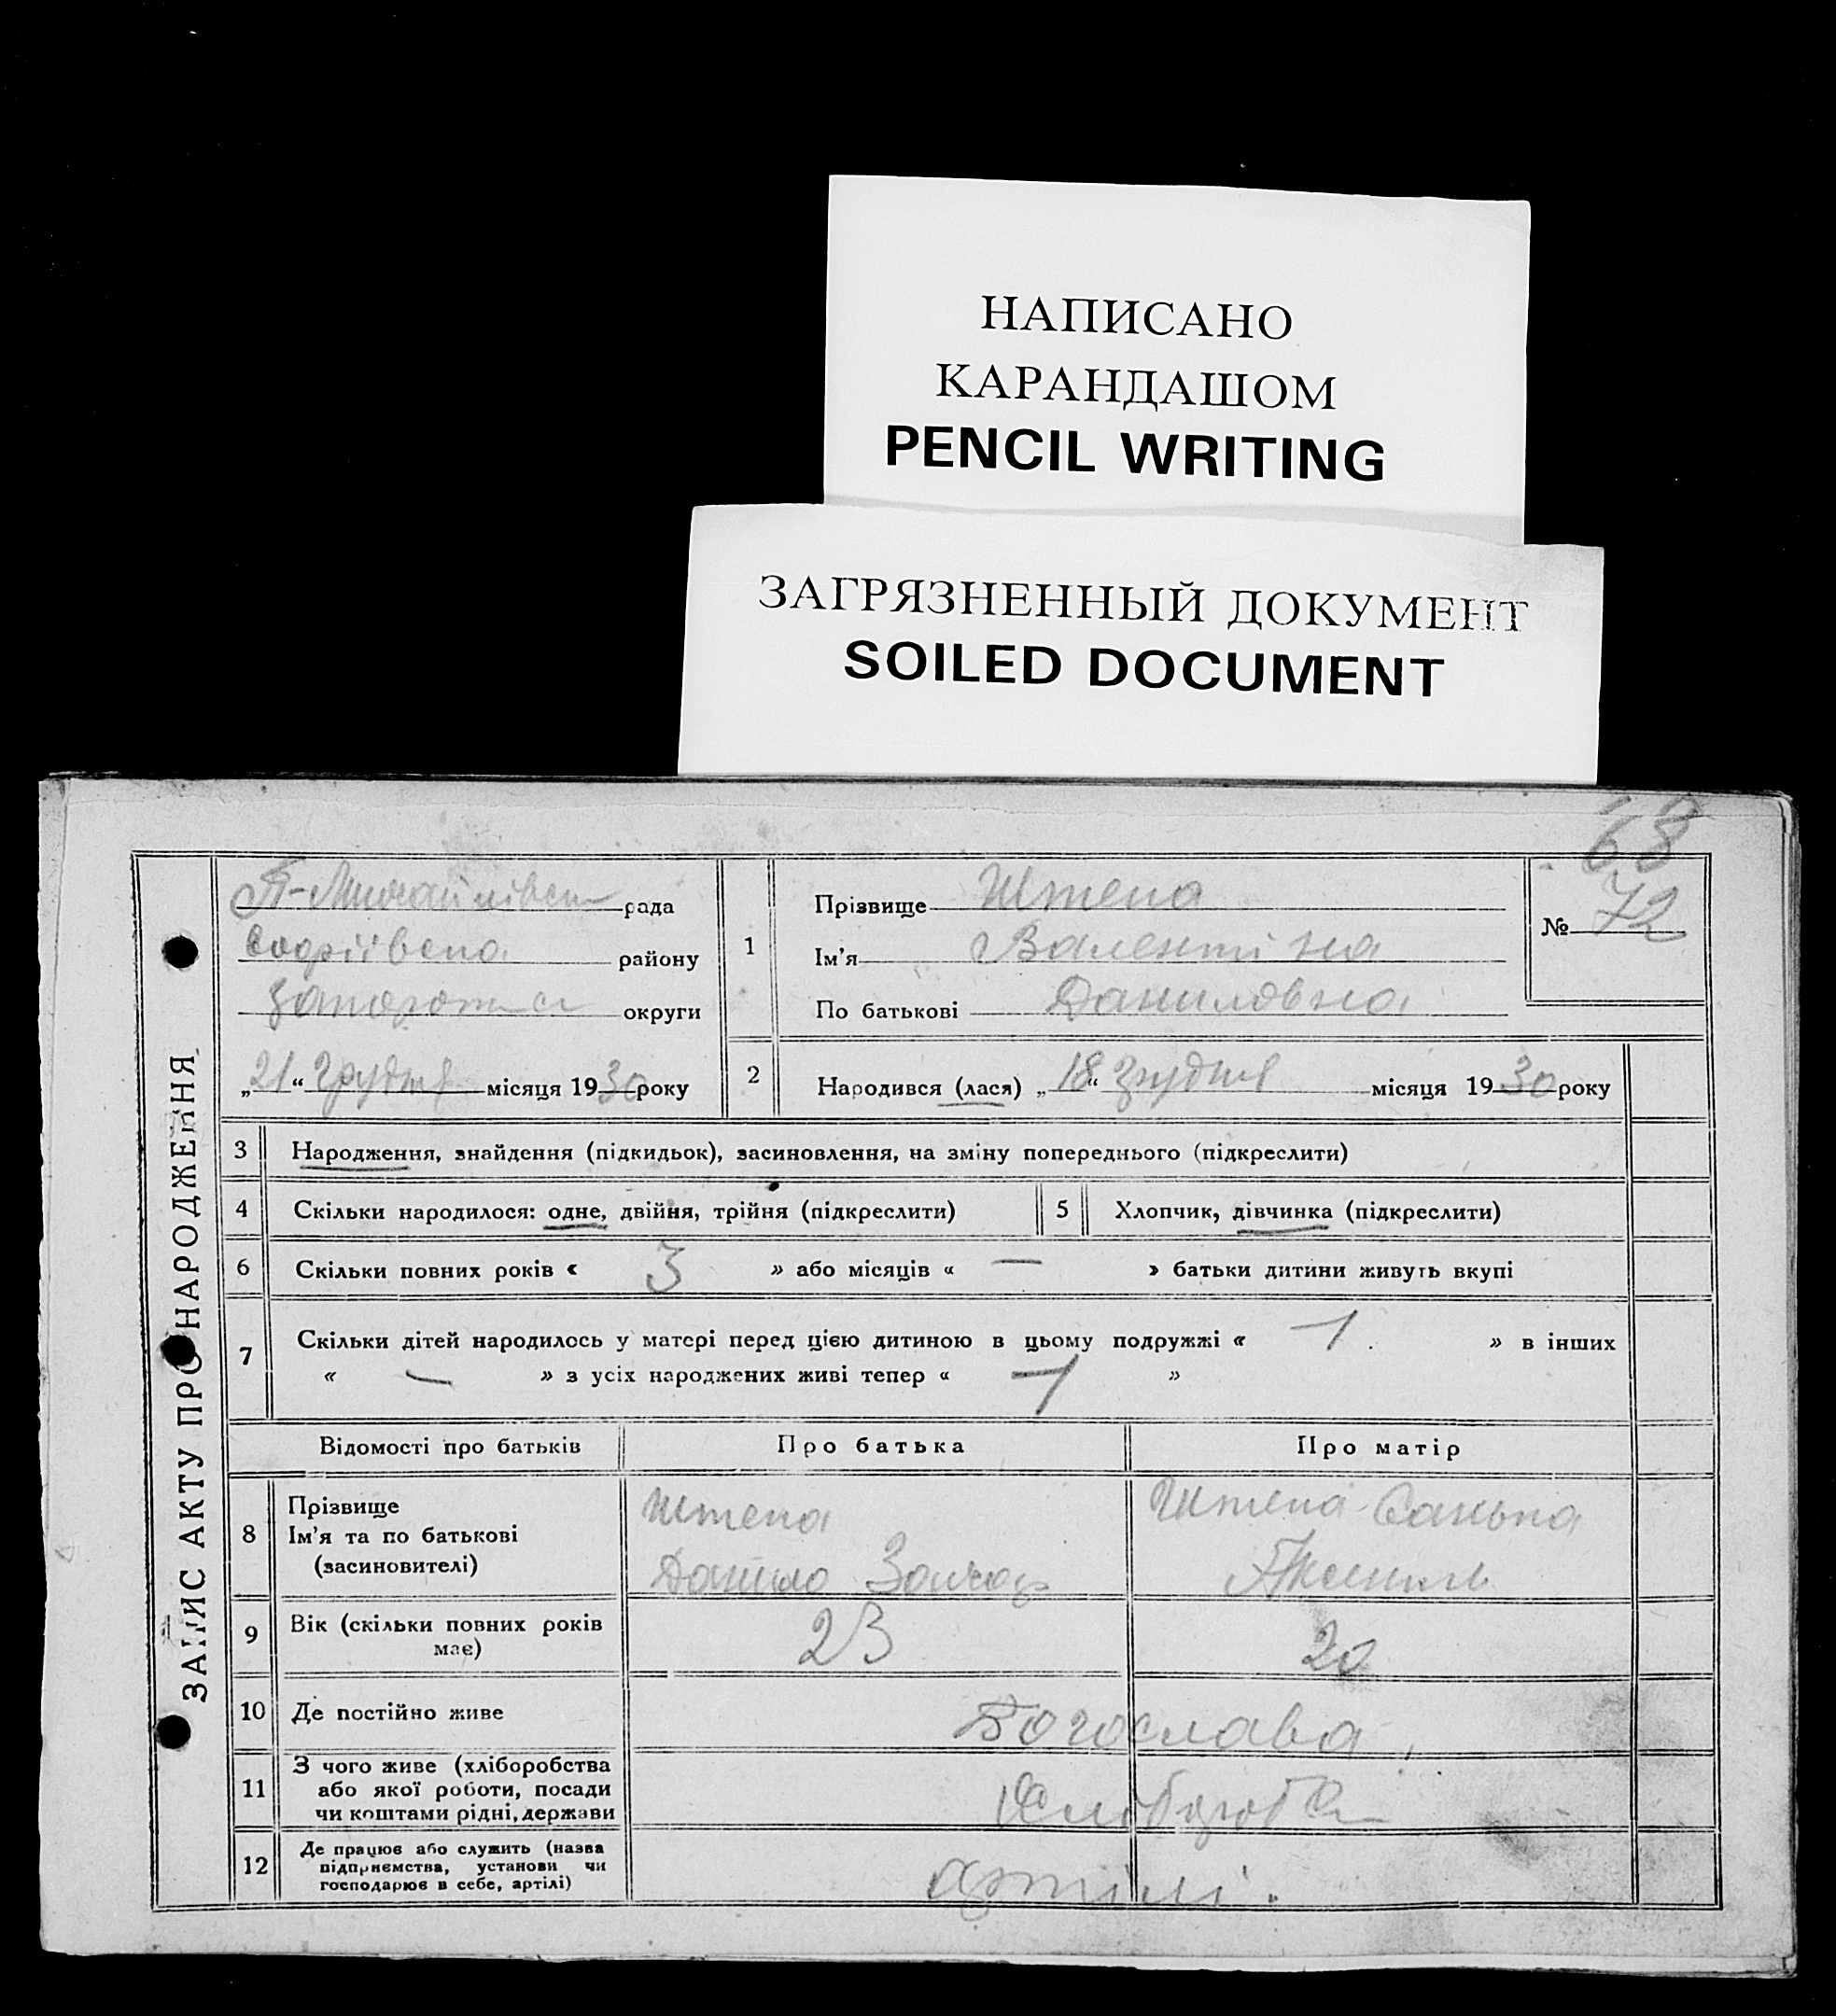 НАПИСАНО
КАРАНДАШОМ
PENCIL WRITING
ЗАГРЯЗНЕННЫЙ ДОКУМЕНТ
SOILED DOCUMENT
68
ЗАПИС АКТУ ПРО НАРОДЖЕННЯ
рада
району
округи
„21“ Грудня місяця 1930 року
1
Прізвище Штепа
Ім'я Валентіна
По батькові Даниловна
№ 72
2 Народився (лася) „18“ грудня місяця 1930 року
3 Народження, знайдення (підкидьок), засиновлення, на зміну попереднього (підкреслити)
4 Скільки народилося: одне, двійня, трійня (підкреслити) 5 Хлопчик, дівчинка (підкреслити)
6 Скільки повних років « 3 » або місяців « — » батьки дитини живуть вкупі
7 Скільки дітей народилось у матері перед цією дитиною в цьому подружжі « 1 » в інших
« — » з усіх народжених живі тепер « 1 »
Відомості про батьків Про батька Про матір
8 Прізвище
Ім'я та по батькові
(засиновителі)
Штепа
Данило
Штепа
9 Вік (скільки повних років
має)
23 20
10 Де постійно живе Богослава
11 З чого живе (хліборобства
або якої роботи, посади
чи коштами рідні, держави
12 Де працює або служить (назва
підприємства, установи чи
господарює в себе, артілі)
артілі